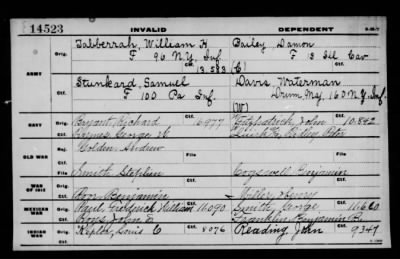 14523 INVALID DEPENDENT
Orig. Tabberrah, William H Bailey Damon
F 96 N.Y. Inf. F 13 Ill Cav
Ctf. 13,583 (C)
ARMY
Orig. Stunkard, Samuel Davis Waterman
F 100 Pa Inf. Drum Maj. 160 N.Y. Inf.
Ctf. (W)
NAVY Orig. Bryant, Richard 16977 Fitzpatrick John 10.842
Ctf. Haynes George
OLD WAR Orig. Holden, Andrew
Ctf. Smith Stephen Cogswell Benjamin
WAR OF 1812 Orig.
Ctf. Orr Benjamin Miller Henry
MEXICAN WAR Orig. Paul, Frederick William 11090 Smith, George 11620
Ctf. Rays John D Franklin Benjamin B.
INDIAN WAR Orig. Kepler, Louis C 8076 Reading, John 9347
Ctf.